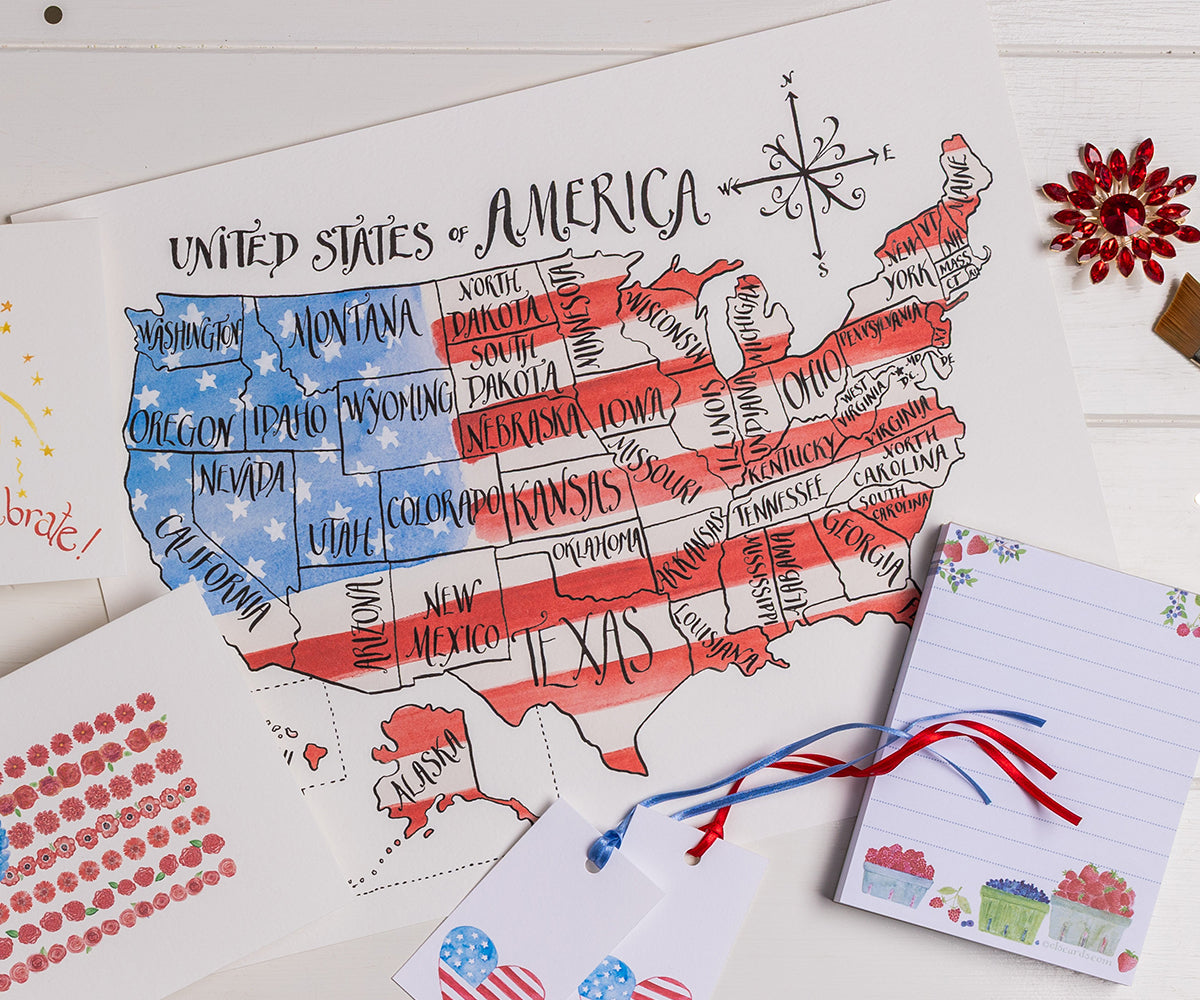 UNITED STATES of AMERICA
N
W
E
S
WASHINGTON
MONTANA
NORTH
DAKOTA
MINNISOTA
WISCONSIN
MICHIGAN
MAINE
VT
NH
NEW
YORK
MASS
CT
RI
OREGON
IDAHO
WYOMING
SOUTH
DAKOTA
NEBRASKA
IOWA
ILLINOIS
INDIANA
OHIO
PENNSYLVANIA
NJ
MD
DE
DC
WEST
VIRGINIA
VIRGINIA
NEVADA
UTAH
COLORADO
KANSAS
MISSOURI
KENTUCKY
NORTH
CAROLINA
TENNESSEE
SOUTH
CAROLINA
CALIFORNIA
ARIZONA
NEW
MEXICO
OKLAHOMA
ARKANSAS
MISSISSIPPI
ALABAMA
GEORGIA
TEXAS
LOUISIANA
F
ALASKA
brate!
©elscards.com